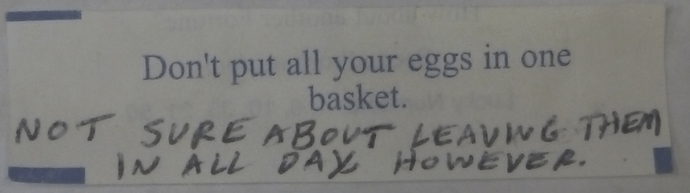 Don't put all your eggs in one
basket.
NOT SURE ABOUT LEAVING THEM
IN ALL DAY HOWEVER.